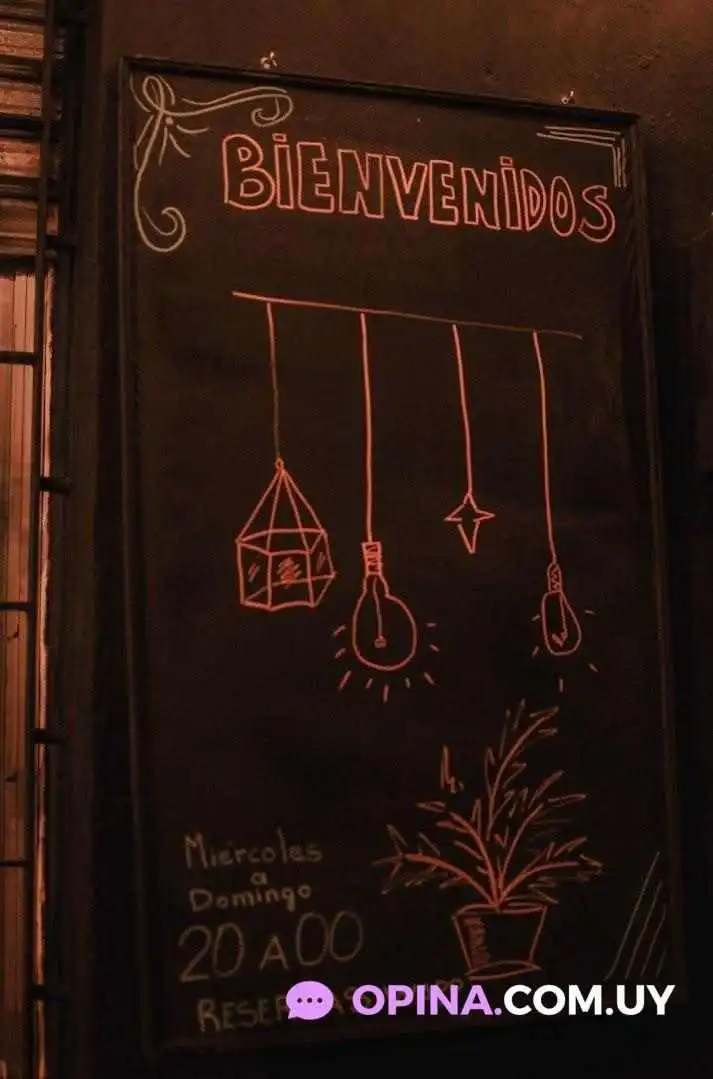 BiENVENiDOS
Miércoles
a
Domingo
20 A 00
OPINA.COM.UY